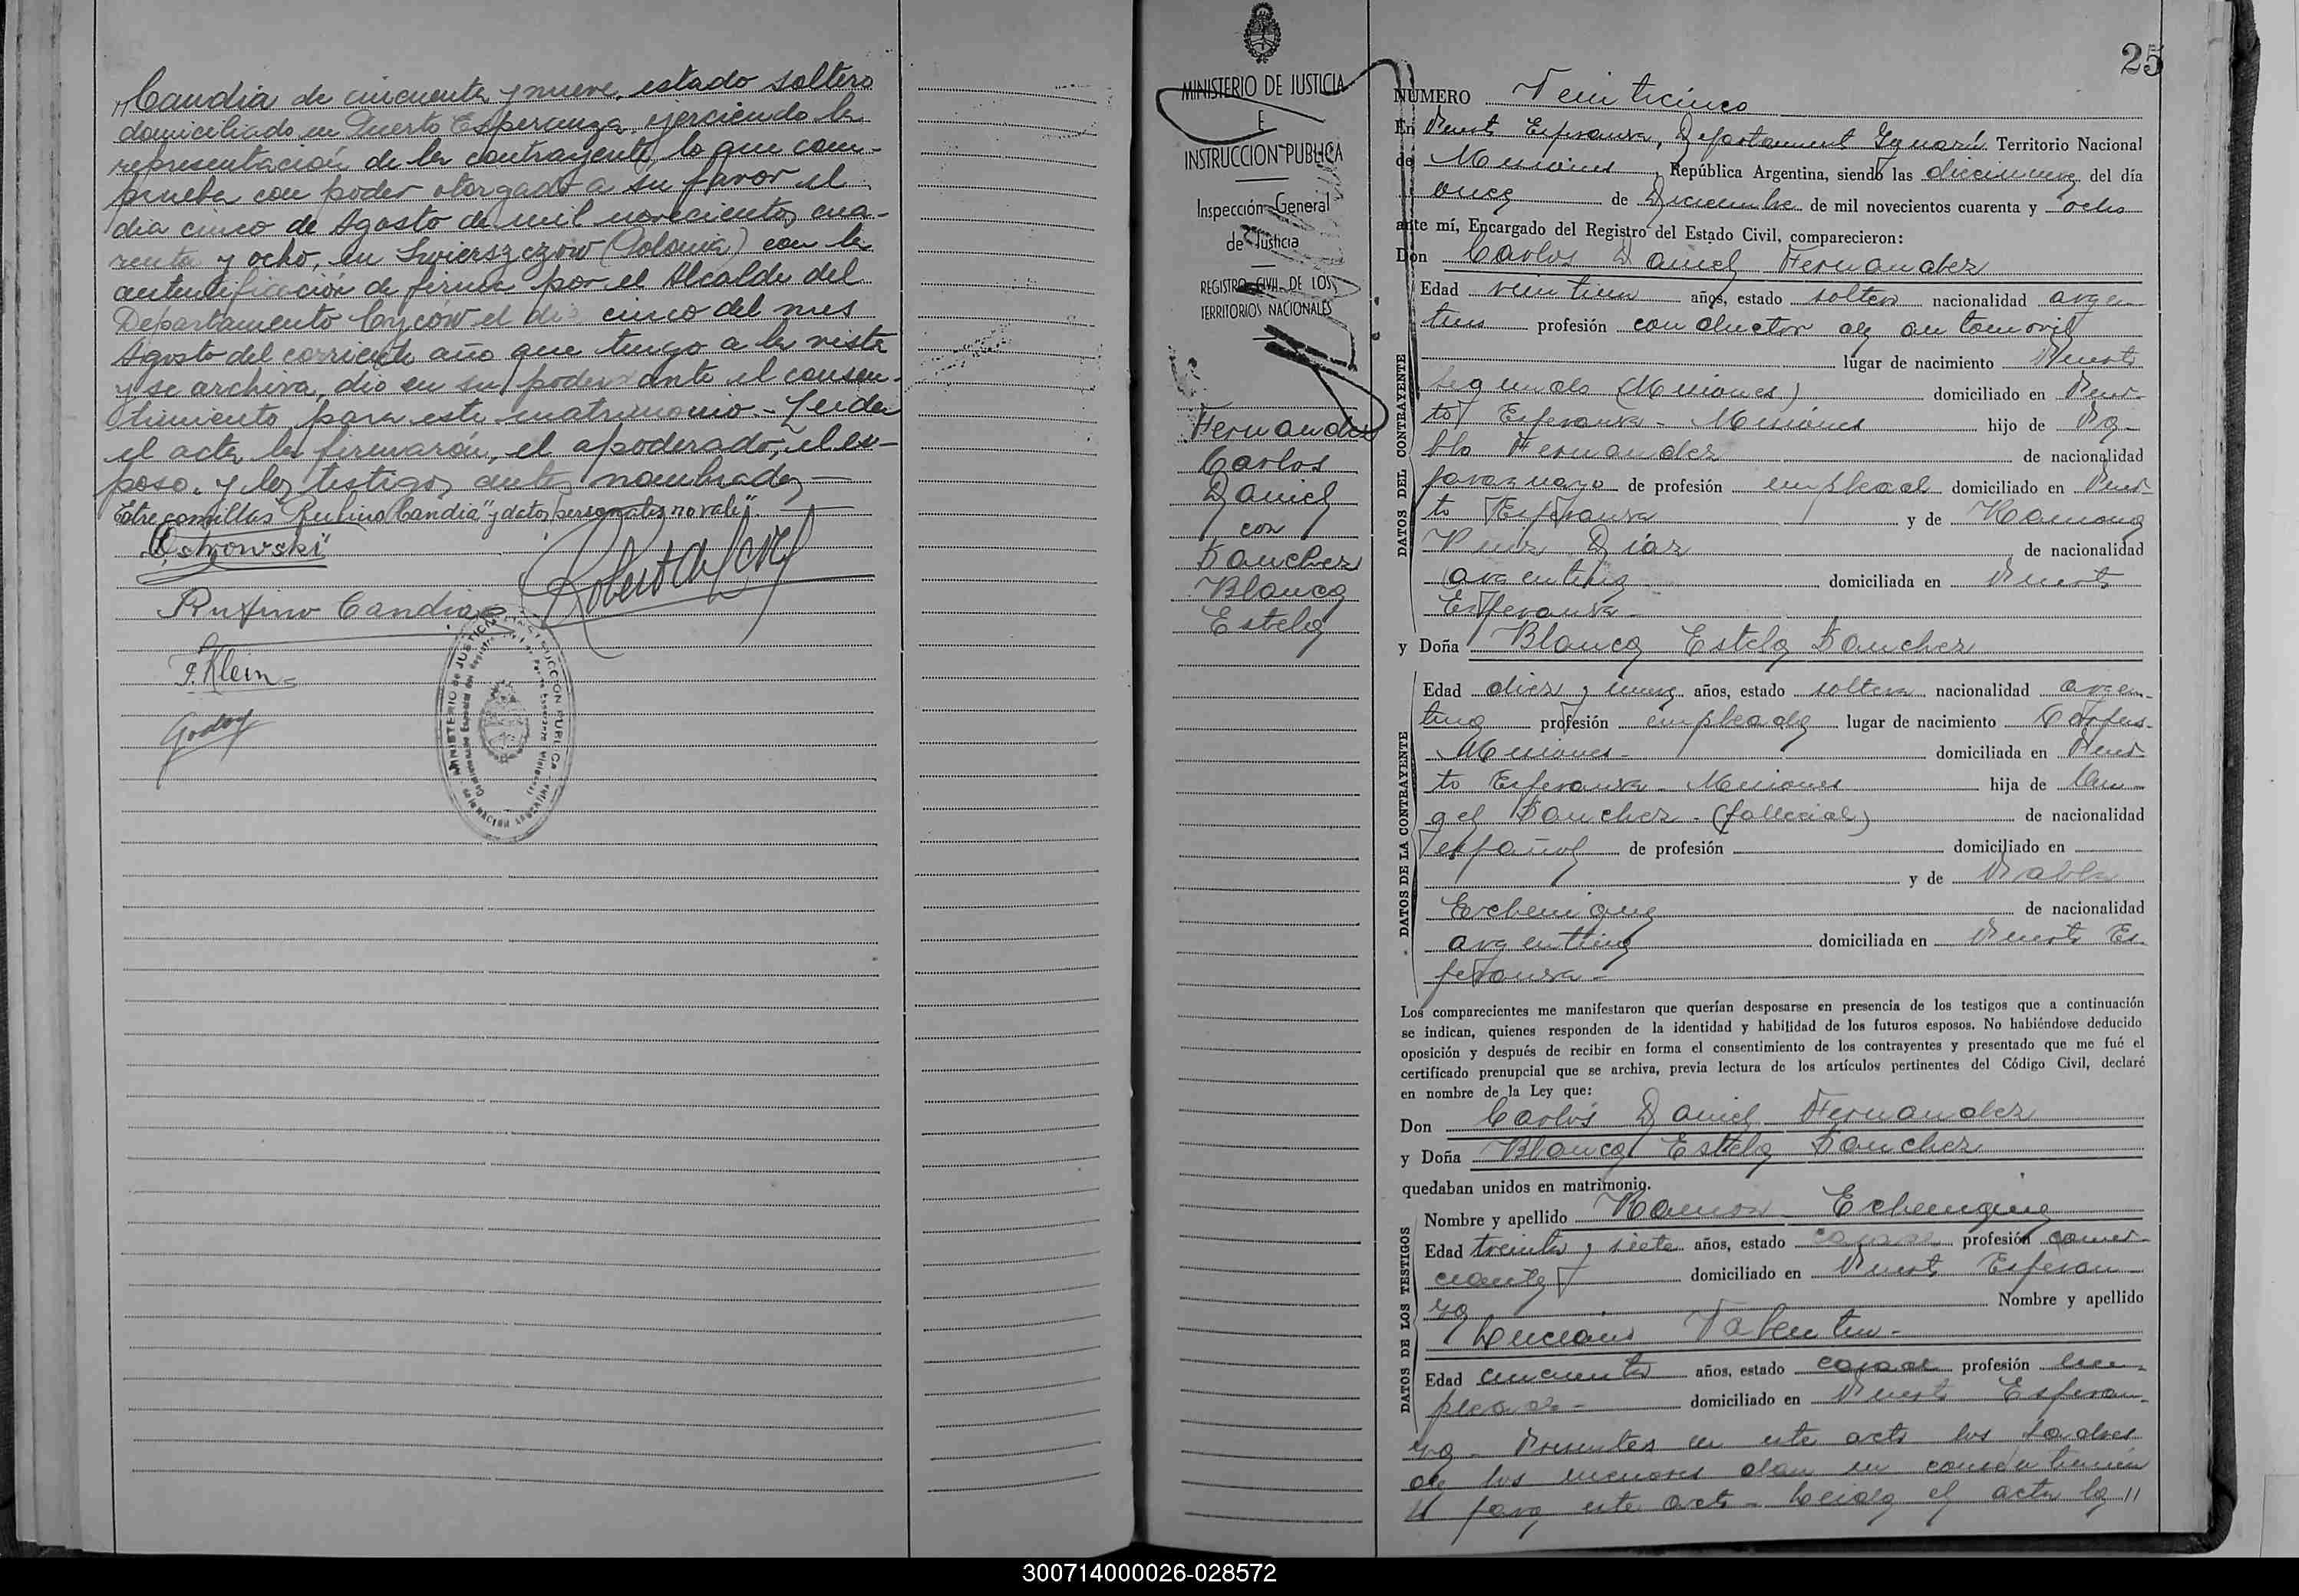 " Candia de cincuenta y nueve, estado soltero
domiciliado en Puerto Esperanza, ejerciendo la
representación de la contrayente, lo que com-
prueba con poder otorgado a su favor el
día cinco de Agosto de mil novecientos cua-
renta y ocho, en Swierszczow (Polonia) con la
autentificación de firma por el Alcalde del
Departamento Cyców el día cinco del mes
Agosto del corriente año que tengo a la vista
y se archiva, dió en su poderdante el consen-
timiento para este matrimonio.- Leida
el acta, la firmarón, el apoderado, el es-
poso, y los testigos antes nombrados —
Entre comillas "Rufino Candia" y datos personales no vale".
Ostrowski
Rufino Candia
F. Klein
Godoy
MINISTERIO DE JUSTICIA
E
INSTRUCCION PUBLICA
Inspección General
de Justicia
REGISTRO CIVIL DE LOS
TERRITORIOS NACIONALES
Fernandez
Carlos
Daniel
con
Sanchez
Blanca
Estela
25
NUMERO Veinticinco
En Puerto Esperanza, Departamento Iguazú Territorio Nacional
de Misiones, República Argentina, siendo las diecinueve del día
once de Diciembre de mil novecientos cuarenta y ocho
ante mí, Encargado del Registro del Estado Civil, comparecieron:
Don Carlos Daniel Fernandez
DATOS DEL CONTRAYENTE
Edad veintiun años, estado soltero nacionalidad argen-
tino profesión conductor de automovil
lugar de nacimiento Puerto
Segundo (Misiones) domiciliado en Puer-
to Esperanza - Misiones hijo de Pa-
blo Fernandez de nacionalidad
paraguayo de profesión empleado domiciliado en Puer-
to Esperanza y de Ramona
Diaz de nacionalidad
argentina domiciliada en Puerto
Esperanza -
y Doña Blanca Estela Sanchez
DATOS DE LA CONTRAYENTE
Edad diez y nueve años, estado soltera nacionalidad argen-
tina profesión empleada lugar de nacimiento Corpus
Misiones - domiciliada en Puer-
to Esperanza - Misiones hija de
gel Sanchez - (fallecido) de nacionalidad
español de profesión domiciliado en
y de Pabla
Echenique de nacionalidad
argentina domiciliada en Puerto Es-
peranza -
Los comparecientes me manifestaron que querían desposarse en presencia de los testigos que a continuación
se indican, quienes responden de la identidad y habilidad de los futuros esposos. No habiéndose deducido
oposición y después de recibir en forma el consentimiento de los contrayentes y presentado que me fué el
certificado prenupcial que se archiva, previa lectura de los artículos pertinentes del Código Civil, declaré
en nombre de la Ley que:
Don Carlos Daniel Fernandez
y Doña Blanca Estela Sanchez
quedaban unidos en matrimonio.
DATOS DE LOS TESTIGOS
Nombre y apellido Ramon Echenique
Edad treinta y siete años, estado casado profesión comer-
ciante domiciliado en Puerto Esperan
za Nombre y apellido
Luciano Valentin -
Edad cincuenta años, estado casado profesión em-
pleado - domiciliado en Puerto Esperan-
za - Presentes en este acto los padres
de los menores dan su consentimien
to para este acto - Leida el acta la "
300714000026-028572